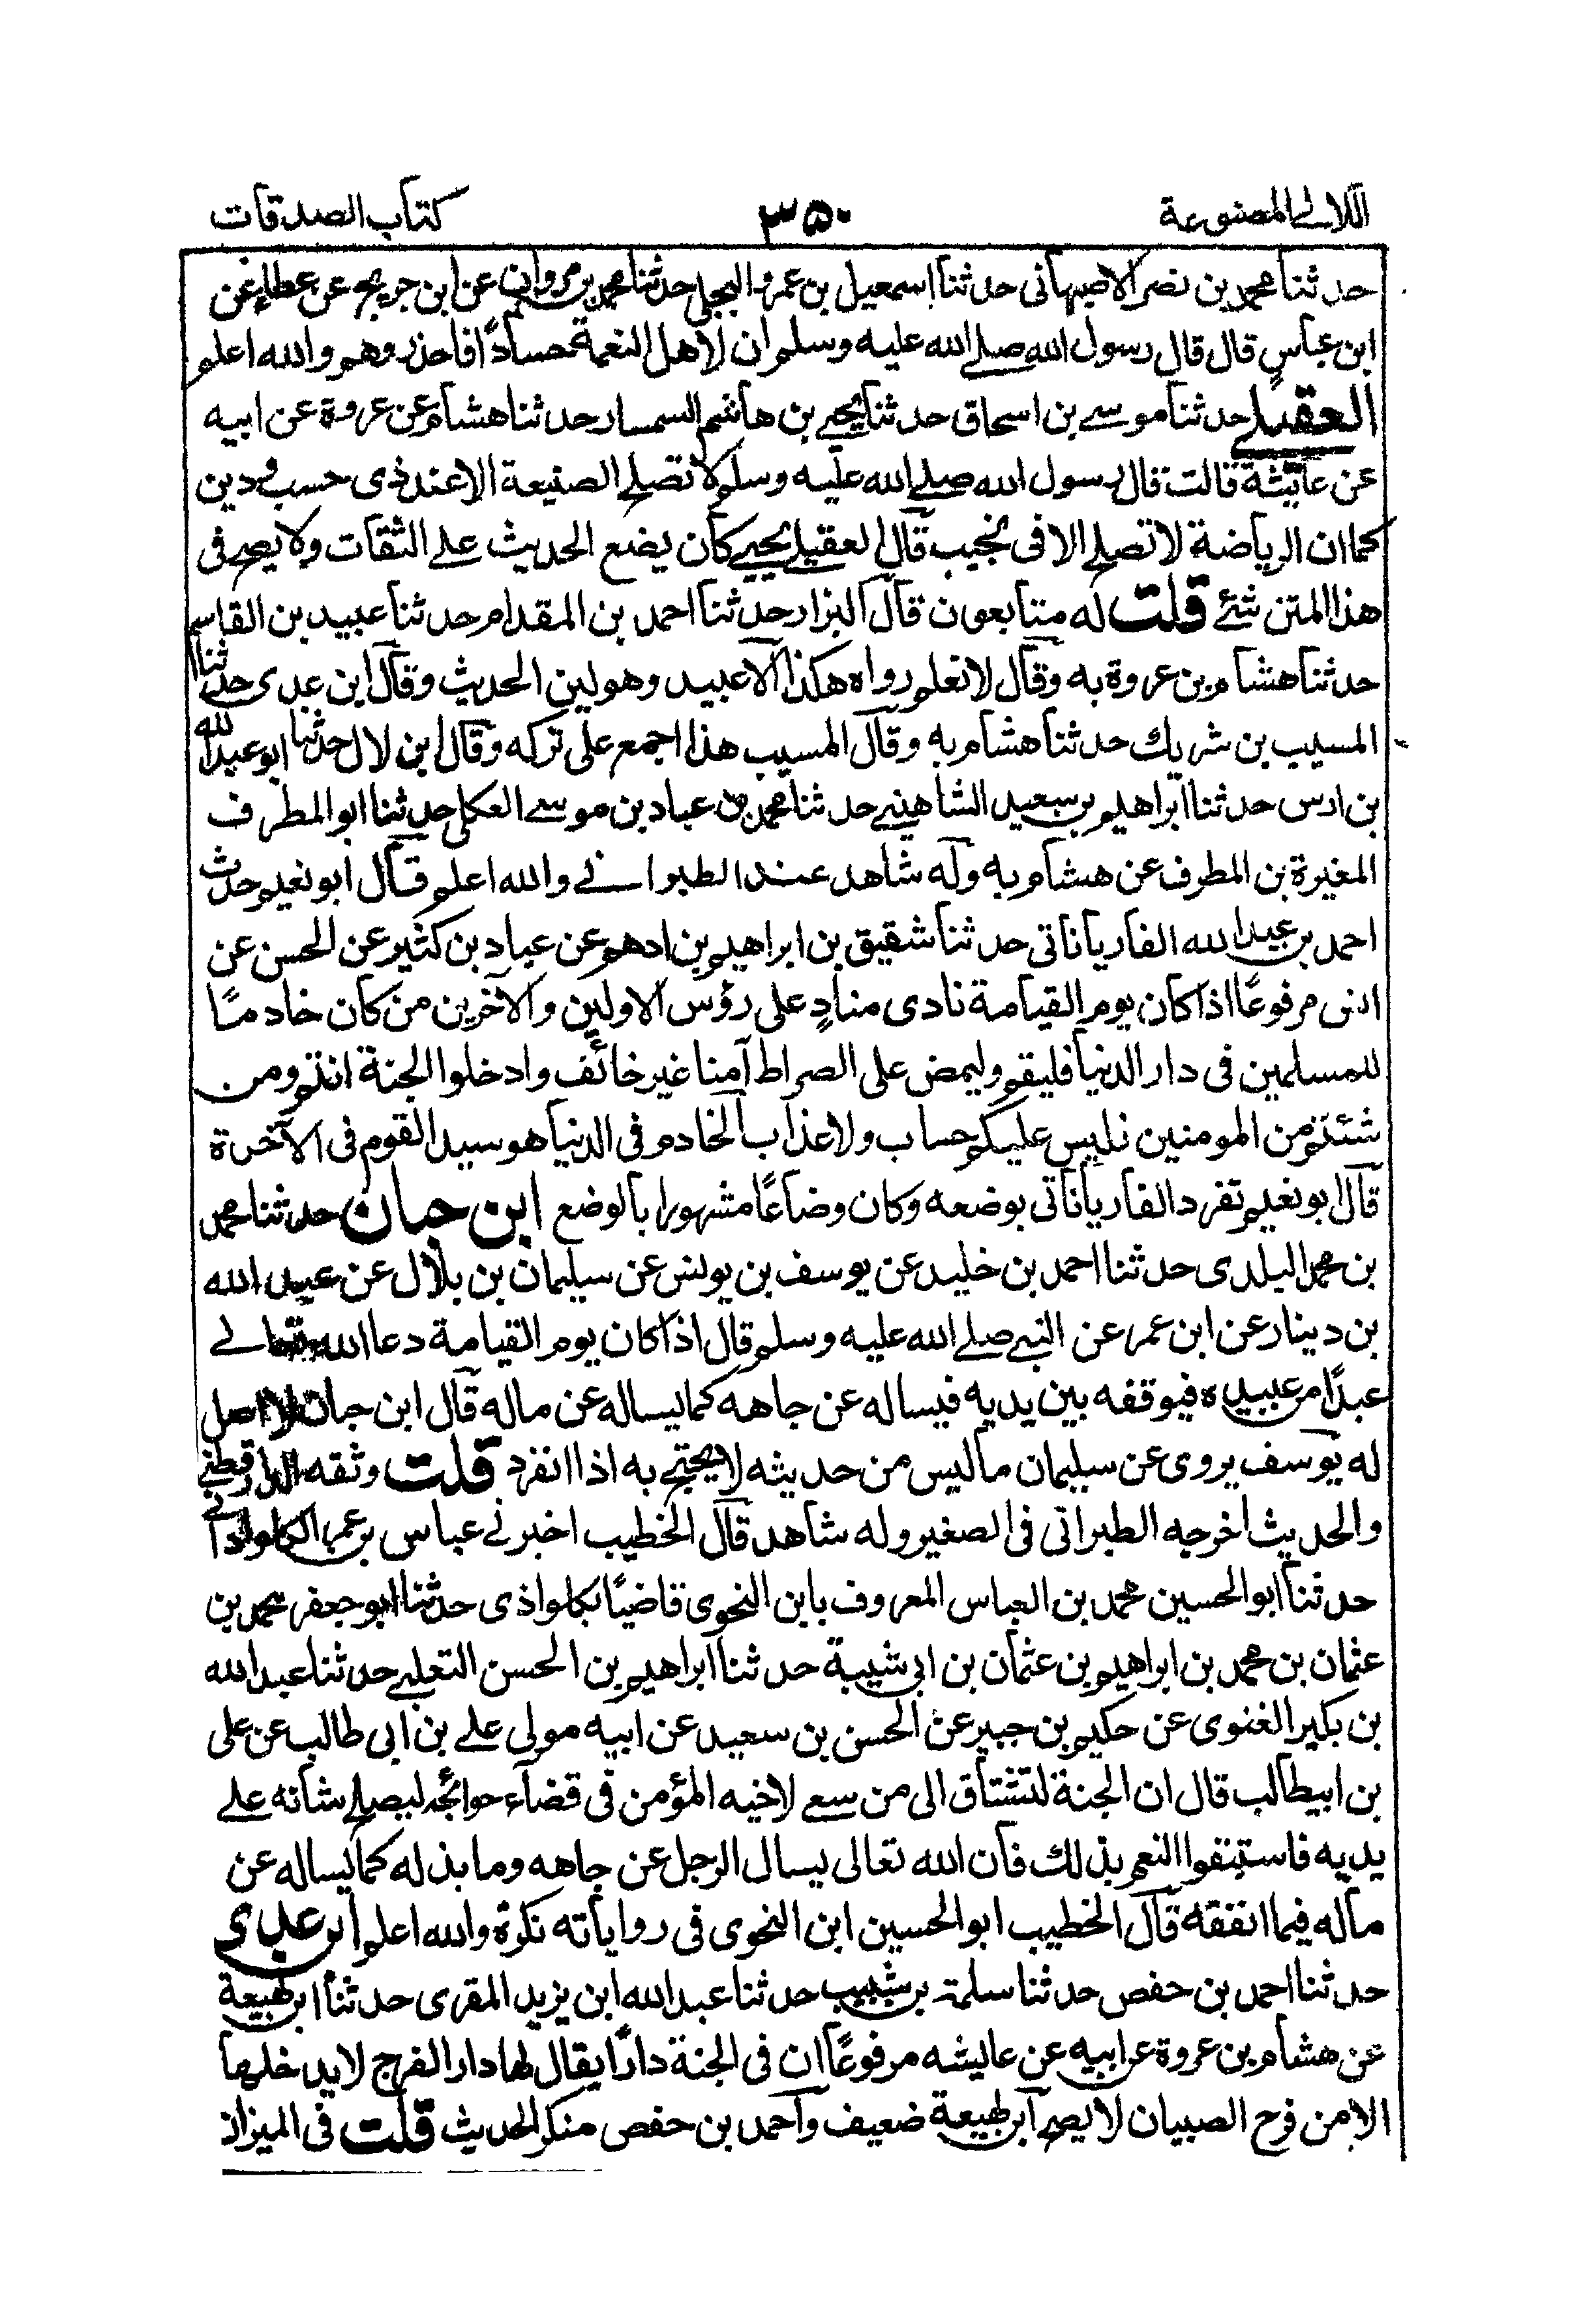 اللآلى المصنوعة ٣٥٠ كتاب الصدقات
حدثنا محمد بن نصر الاصبهانى حدثنا اسمعيل بن عمرو البجلى حدثنا محمد بن مروان عن ابن جريج عن عطاء عن
ابن عباس قال قال رسول الله صلے الله عليه وسلم ان لاهل النعمة حسادًا فاحذروهم والله اعلم
العقيلے حدثنا موسے بن اسحاق حدثنا يحيے بن هاشم السمسار حدثنا هشام عن عروة عن ابيه
عن عائشة قالت قال رسول الله صلے الله عليه وسلم لا تصلح الصنيعة الا عند ذى حسب و دين
كما ان الرياضة لا تصلح الا فى نجيب قال العقيلے يحيے كان يضع الحديث علے الثقات ولا يصح فى
هذا المتن شئے قلت له متابعون قال البزار حدثنا احمد بن المقدام حدثنا عبيد بن القاسم
حدثنا هشام بن عروة به وقال لا نعلم رواه هكذا الا عبيد وهو لين الحديث وقال ابن عدى حدثنا
المسيب بن شريك حدثنا هشام به وقال المسيب هذا اجمع على تركه وقال ابن لال حدثنا ابو عبد الله
بن ادس حدثنا ابراهيم بن سعيد الشاهينے حدثنا محمد بن عباد بن موسے العكلى حدثنا ابو المطرف
المغيرة بن المطرف عن هشام به وله شاهد عند الطبرانے والله اعلم قال ابو نعيم حدث
احمد بن عبد الله الفارياناتى حدثنا شقيق بن ابراهيم بن ادهم عن عباد بن كثير عن الحسن عن
انس مرفوعًا اذا كان يوم القيامة نادى منادٍ على رؤس الاولين والآخرين من كان خادمًا
للمسلمين فى دار الدنيا فليقم وليمض على الصراط آمنا غير خائف وادخلوا الجنة انتم ومن
شئتم من المومنين فليس عليكم حساب ولا عذاب الخادم فى الدنيا هو سيد القوم فى الآخرة
قال ابو نعيم تفرد الفارياناتى بوضعه وكان وضاعًا مشهورا بالوضع ابن حبان حدثنا محمد
بن محمد البلدى حدثنا احمد بن خليد عن يوسف بن يونس عن سليمان بن بلال عن عبد الله
بن دينار عن ابن عمر عن النبے صلے الله عليه وسلم قال اذا كان يوم القيامة دعا الله تعالے
عبدًا من عبيده فيوقفه بين يديه فيساله عن جاهه كما يساله عن ماله قال ابن حبان لا اصل
له يوسف يروى عن سليمان ما ليس من حديثه لا يحتج به اذا انفرد قلت وثقه الدارقطنے
والحديث اخرجه الطبرانى فى الصغير وله شاهد قال الخطيب اخبرنے عباس بن عمر الكلواذانے
حدثنا ابو الحسين محمد بن العباس المعروف بابن النحوى قاضيًا بكلواذى حدثنا ابو جعفر محمد بن
عثمان بن محمد بن ابراهيم بن عثمان بن ابى شيبة حدثنا ابراهيم بن الحسن التغلبے حدثنا عبد الله
بن بكير الغنوى عن حكيم بن جبير عن الحسن بن سعيد عن ابيه مولى علے بن ابى طالب عن على
بن ابيطالب قال ان الجنة لتشتاق الى من سعے لاخيه المؤمن فى قضاء حوائجه ليصلح شانه علے
يديه فاستبقوا النعم بذلك فان الله تعالى يسال الرجل عن جاهه وما بذله كما يساله عن
ماله فيما انفقه قال الخطيب ابو الحسين ابن النحوى فى رواياته نكرة والله اعلم ابن عدى
حدثنا احمد بن حفص حدثنا سلمة بن شبيب حدثنا عبد الله ابن يزيد المقرى حدثنا ابن لهيعة
عن هشام بن عروة عن ابيه عن عايشه مرفوعًا ان فى الجنة دارًا يقال لها دار الفرح لا يدخلها
الا من فرح الصبيان لا يصح ابن لهيعة ضعيف واحمد بن حفص منكر الحديث قلت فى الميزان